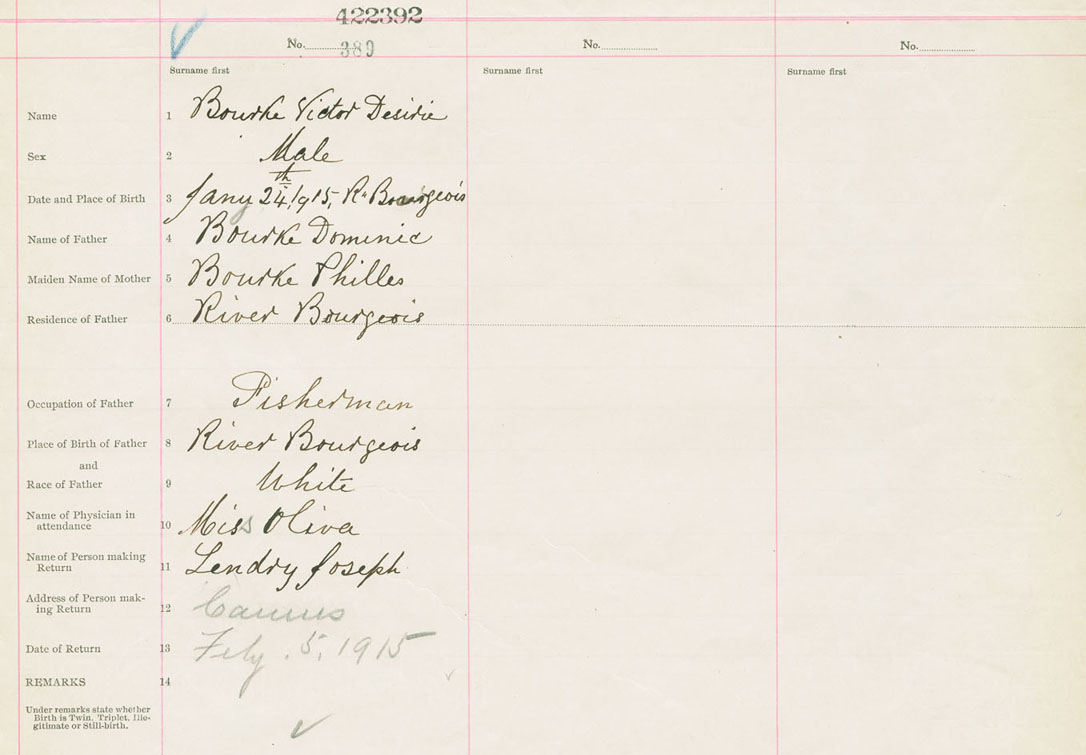 422392
No. 389
No.
No.
Surname first
Surname first
Surname first
Name 1 Bourke Victor Desirie
Sex 2 Male
Date and Place of Birth 3 Jany 24th, 1915, R. Bourgeois
Name of Father 4 Bourke Dominic
Maiden Name of Mother 5 Bourke Philles
Residence of Father 6 River Bourgeois
Occupation of Father 7 Fisherman
Place of Birth of Father 8 River Bourgeois
and
Race of Father 9 White
Name of Physician in
attendance 10 Miss Oliva
Name of Person making
Return 11 Lendry Joseph
Address of Person mak-
ing Return 12
Date of Return 13 Feby. 5, 1915
REMARKS 14
Under remarks state whether
Birth is Twin, Triplet, Ille-
gitimate or Still-birth.